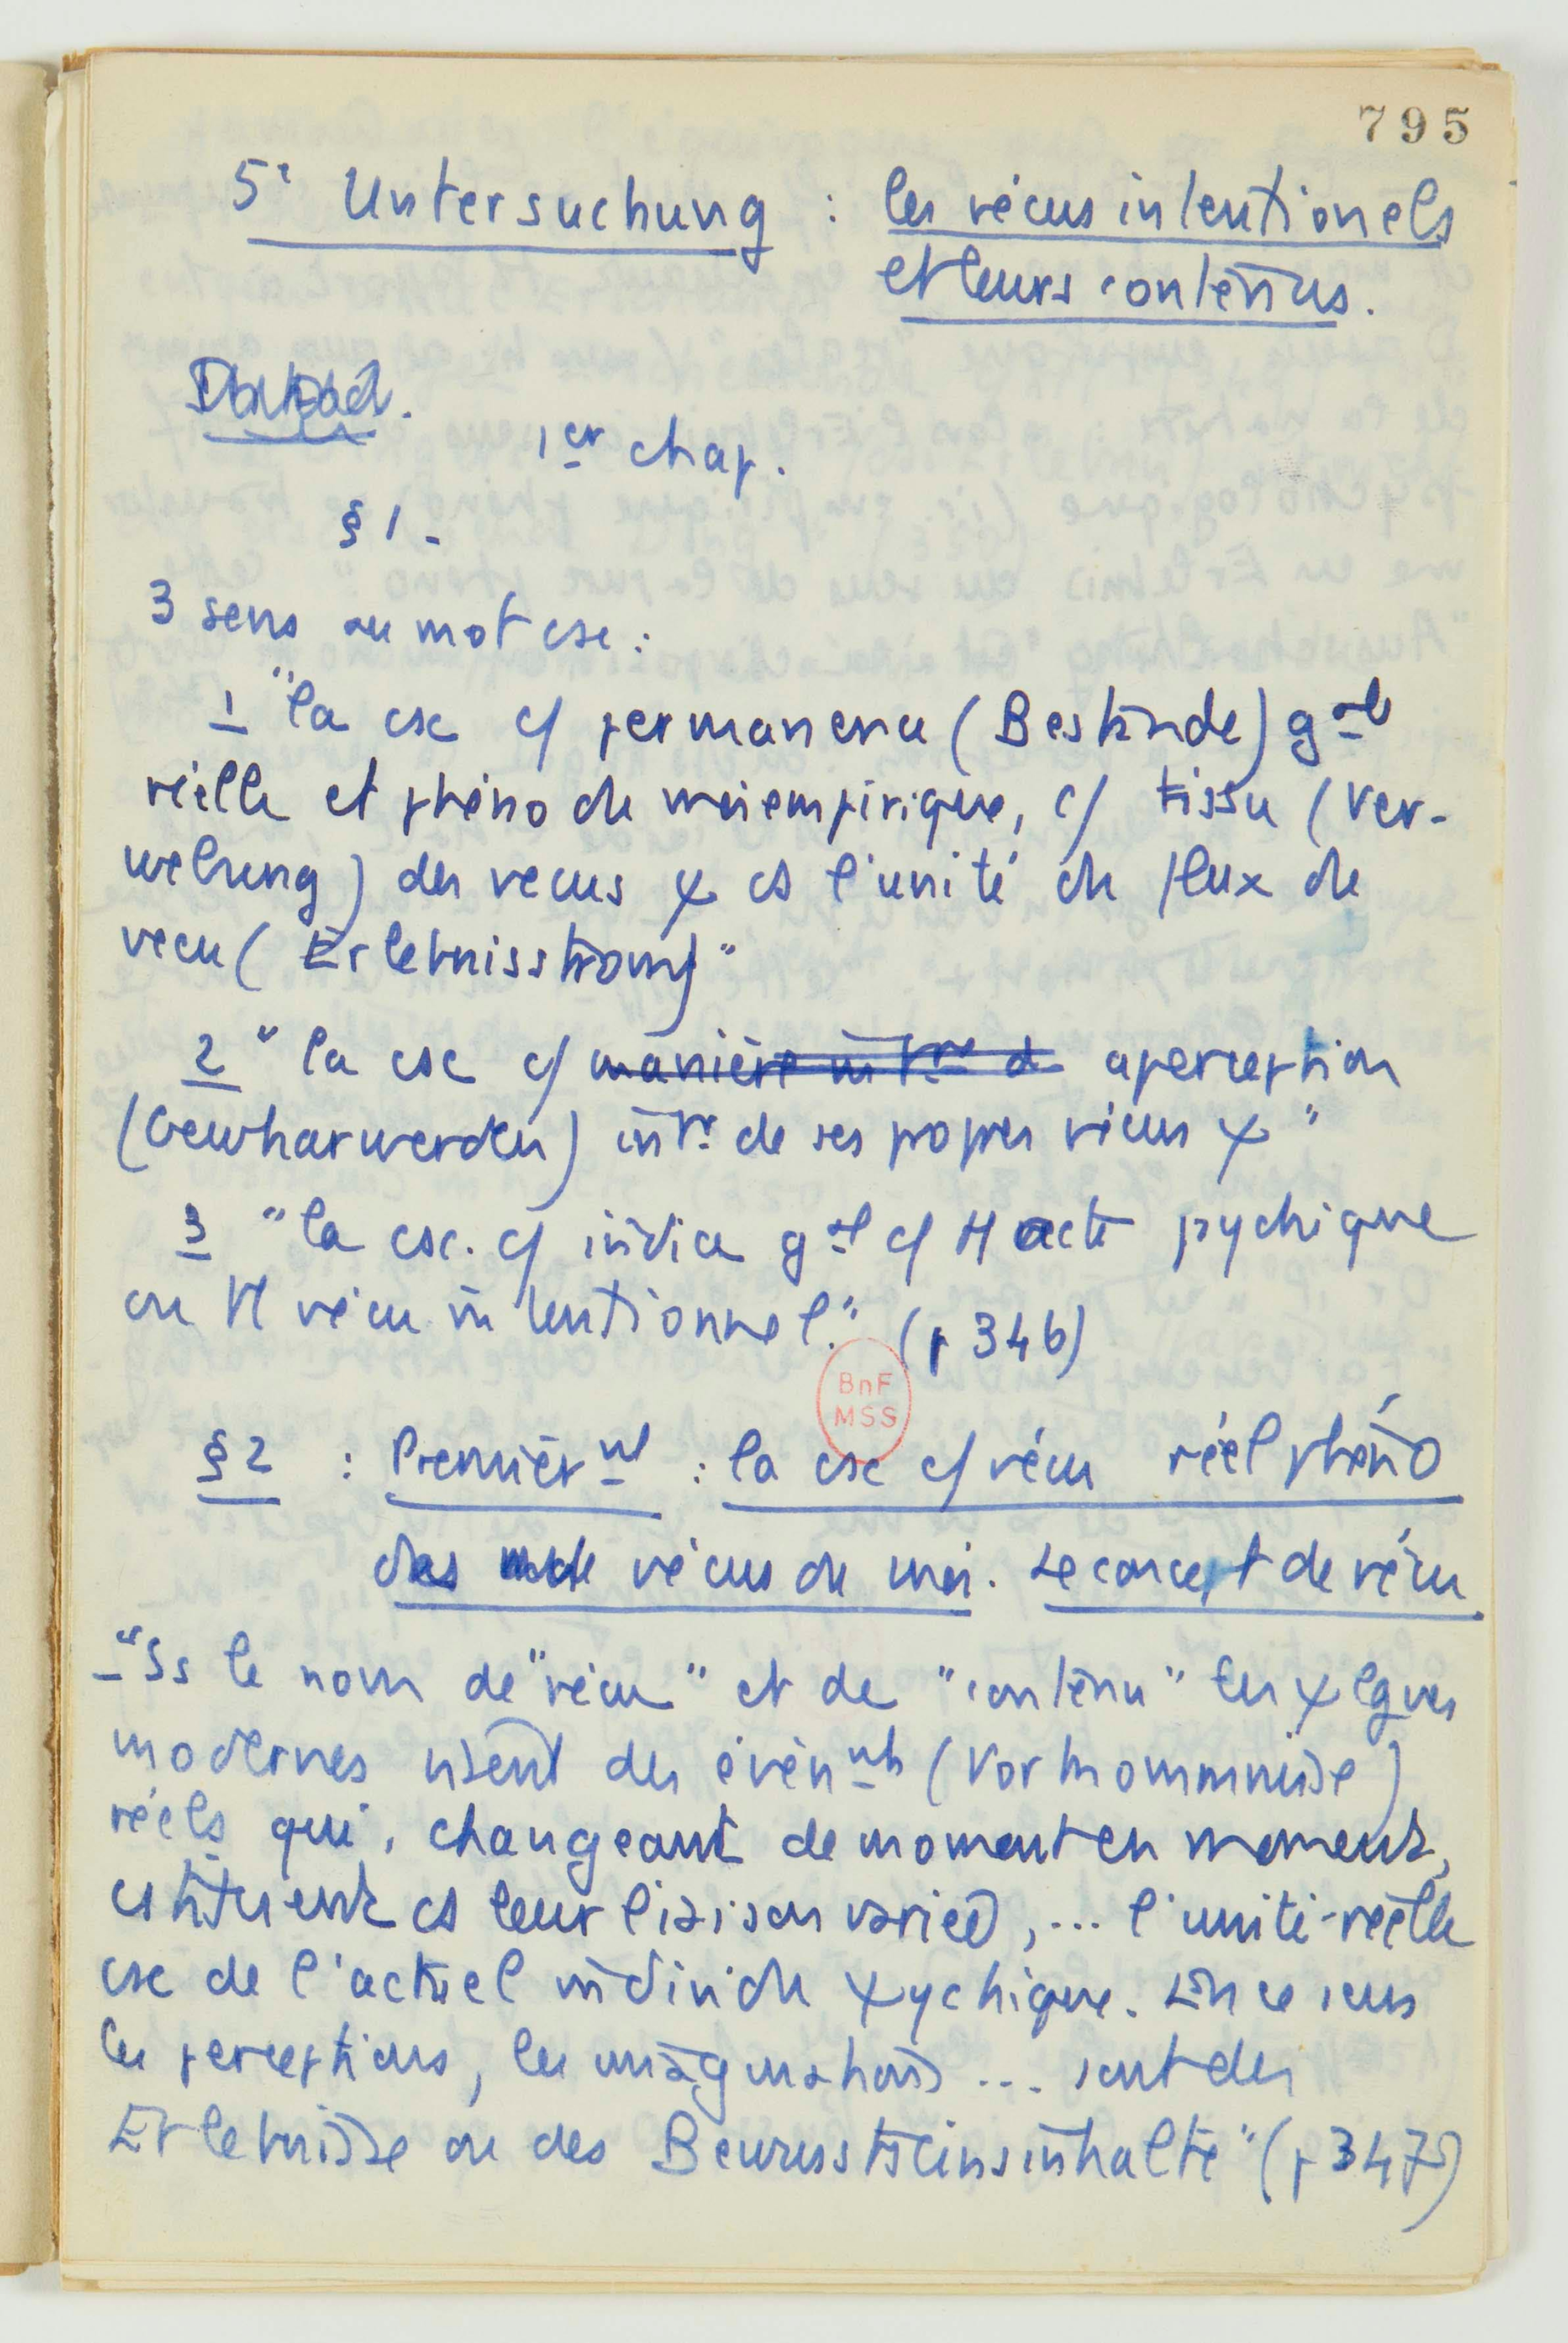 795
5e Untersuchung : les vécus intentionels
et leurs contenus.
1er chap.
§ 1 -
3 sens au mot csc :
1 "la csc c/ permanence (Bestände) gale
réelle et phéno du moi empirique, c/ tissu (Ver-
webung) des vecus ψ ds l'unité du flux du
vecu (Erlebnisstrom)"
2 "la csc c/ manière int.re d aperception
(Gewharwerden) intre de ses propres vécus ψ"
3 "la csc. c/ indice gal c/ tt acte psychique
ou tt vécu intentionnel." (p 346)
BnF
MSS
§ 2 : Premièrnt : la csc c/ vécu réel phéno
des vécus du moi. Le concept de vécu
- "Ss le nom de "vécu" et de "contenu" les ψlgues
modernes visent des évènnts (Vorkommnisse)
réels qui, changeant de moment en moment,
cstituent ds leur liaison variée, ... l'unité-réelle
csc de l'actuel individu ψychique. En ce sens
les perceptions, les imaginations ... sont des
Erlebnisse ou des Bewusstseinsinhalte" (p 347)